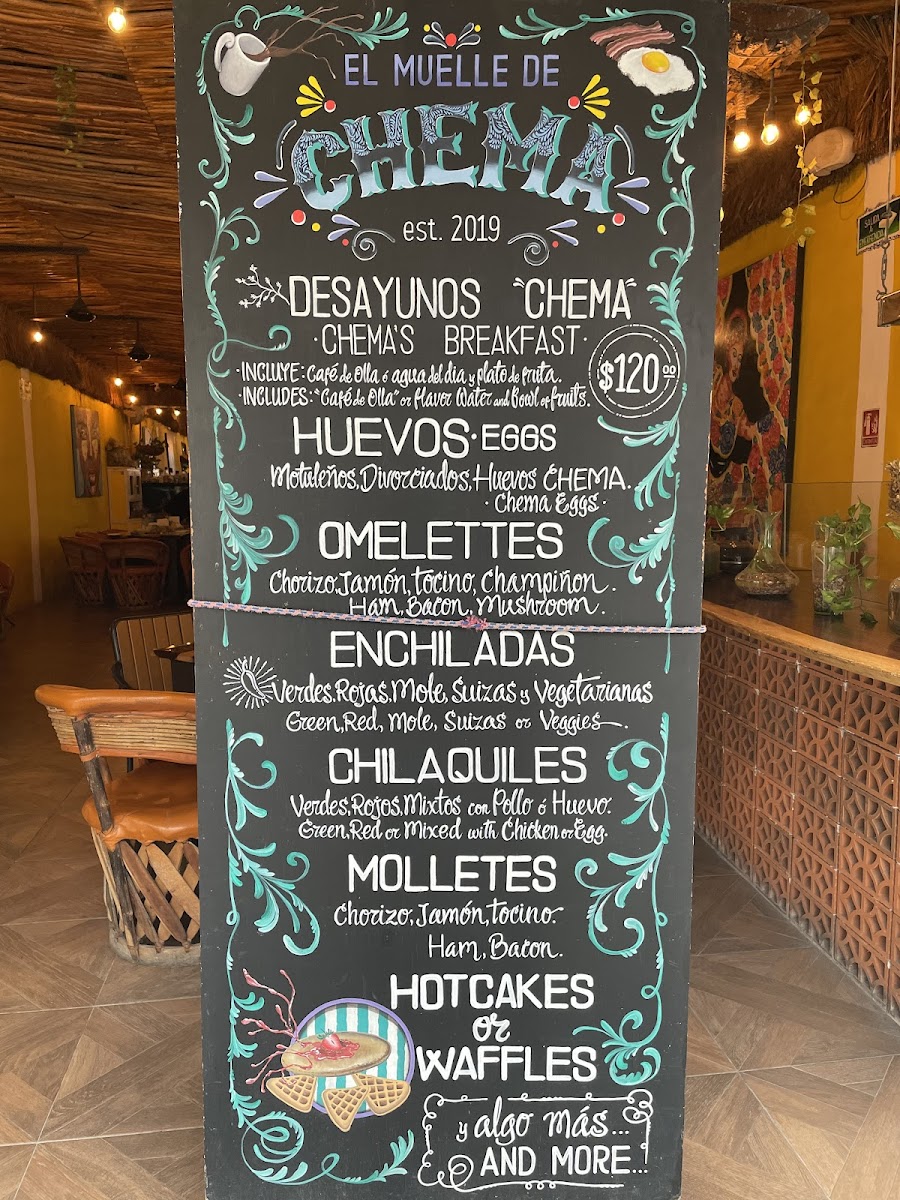 EL MUELLE DE
CHEMA
est. 2019
DESAYUNOS "CHEMA"
·CHEMA'S BREAKFAST·
·INCLUYE: Café de Olla ó agua del dia y plato de fruta.
·INCLUDES: "Café de Olla" or Flavor Water and Bowl of fruits.
$120.00
HUEVOS·EGGS
Motuleños, Divorciados, Huevos CHEMA.
·Chema Eggs·
OMELETTES
Chorizo, Jamón, Tocino, Champiñon.
Ham, Bacon, Mushroom.
ENCHILADAS
Verdes, Rojas, Mole, Suizas y Vegetarianas
Green, Red, Mole, Suizas or Veggies.
CHILAQUILES
Verdes, Rojos, Mixtos con Pollo ó Huevo.
Green, Red or Mixed with Chicken or Egg.
MOLLETES
Chorizo, Jamón, Tocino.
Ham, Bacon.
HOTCAKES
or
WAFFLES
y algo más...
AND MORE...
SALIDA